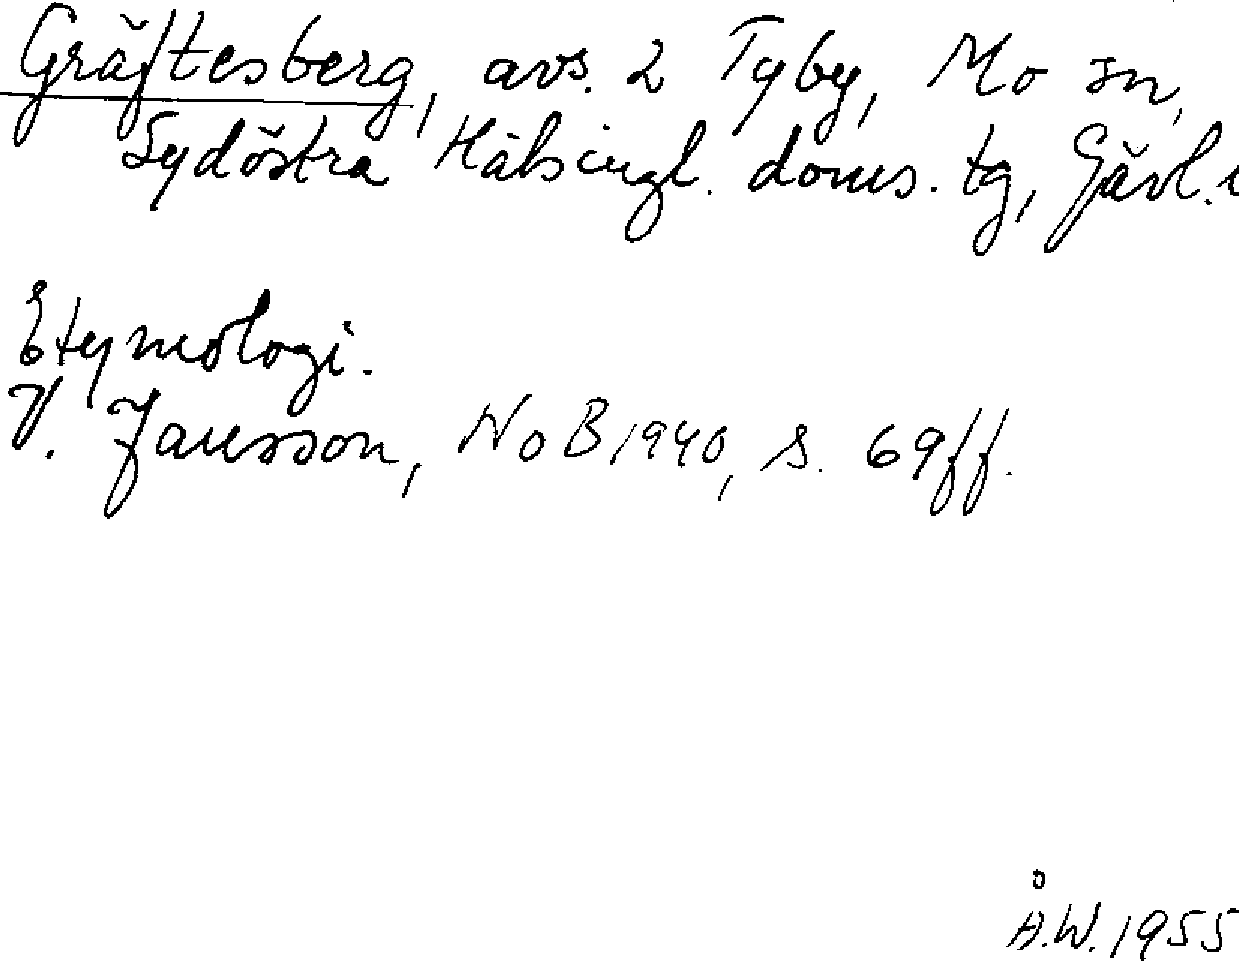 Gräftesberg, avs. 2 Tyby, Mo sn,
Sydöstra Hälsingl. doms. tg, Gävl. l
Etymologi.
V. Jansson, NoB 1940, s. 69ff.
Å.W. 1955